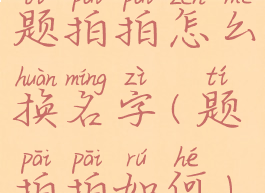 题拍拍怎么
huàn míng zì tí
换名字(题
pāi pāi rú hé
拍拍如何)